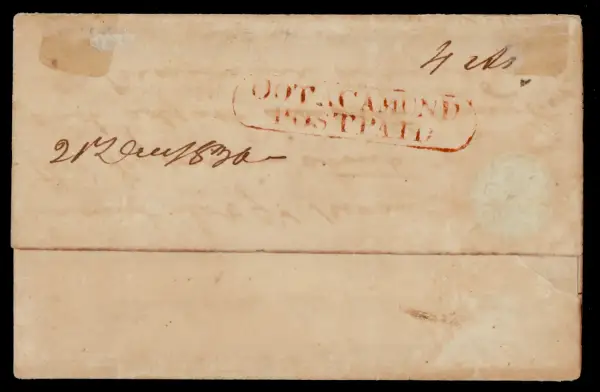 4 As
OOTACAMUND
POSTPAID
21 Dec 1836